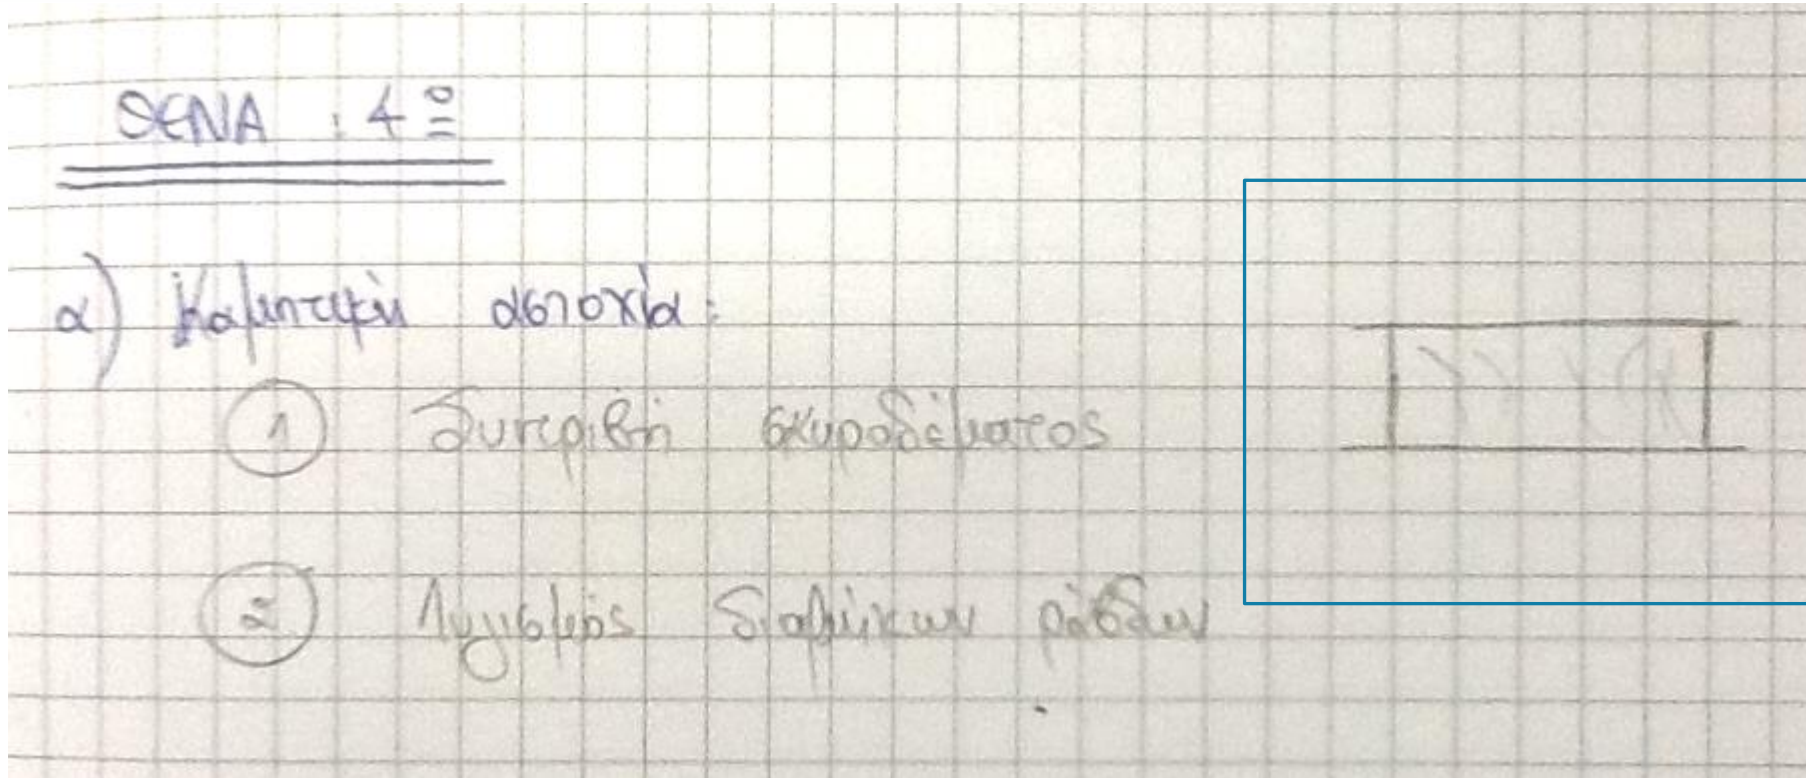 ΘΕΜΑ : 4º
α) Καμπτική αστοχία:
① Συντριβή σκυροδέματος
② Λυγισμός διαμήκων ράβδων